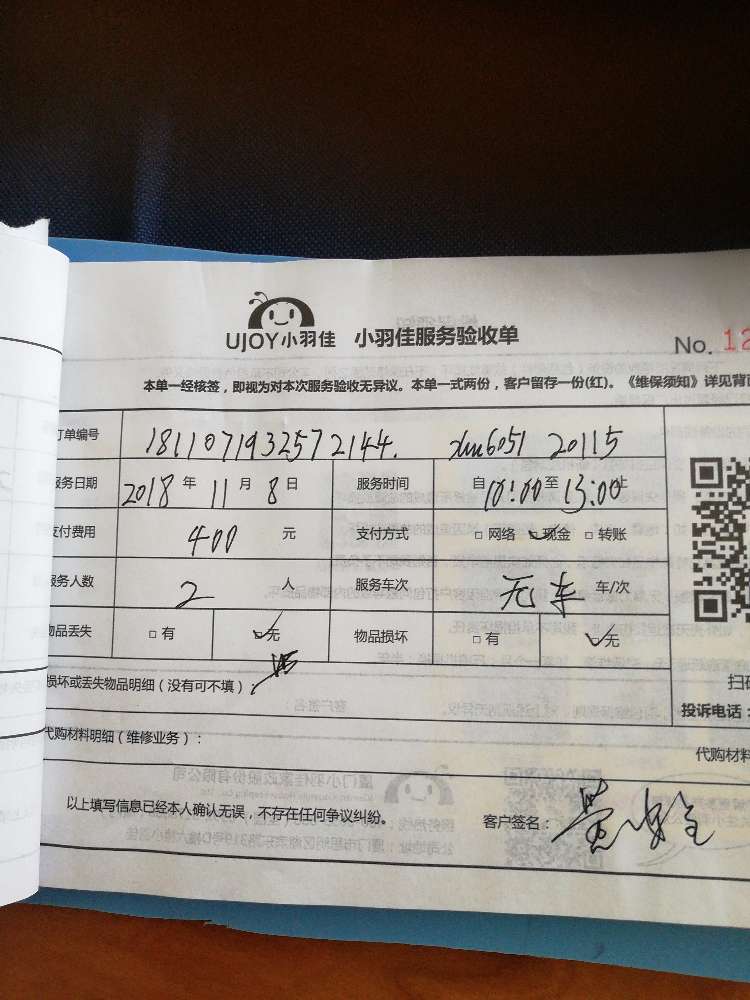 UJOY小羽佳 小羽佳服务验收单
No. 12
本单一经核签，即视为对本次服务验收无异议。本单一式两份，客户留存一份(红)。《维保须知》详见背面
订单编号 1811071932572144. xm6051 20115
服务日期 2018 年 11 月 8 日 服务时间 自 10:00 至 13:00 止
支付费用 400 元 支付方式 □ 网络 ☑ 现金 □ 转账
服务人数 2 人 服务车次 无车 车/次
物品丢失 □ 有 ☑ 无 物品损坏 □ 有 ☑ 无
损坏或丢失物品明细（没有可不填）
扫码
投诉电话：
代购材料明细（维修业务）：
代购材料
以上填写信息已经本人确认无误，不存在任何争议纠纷。 客户签名：